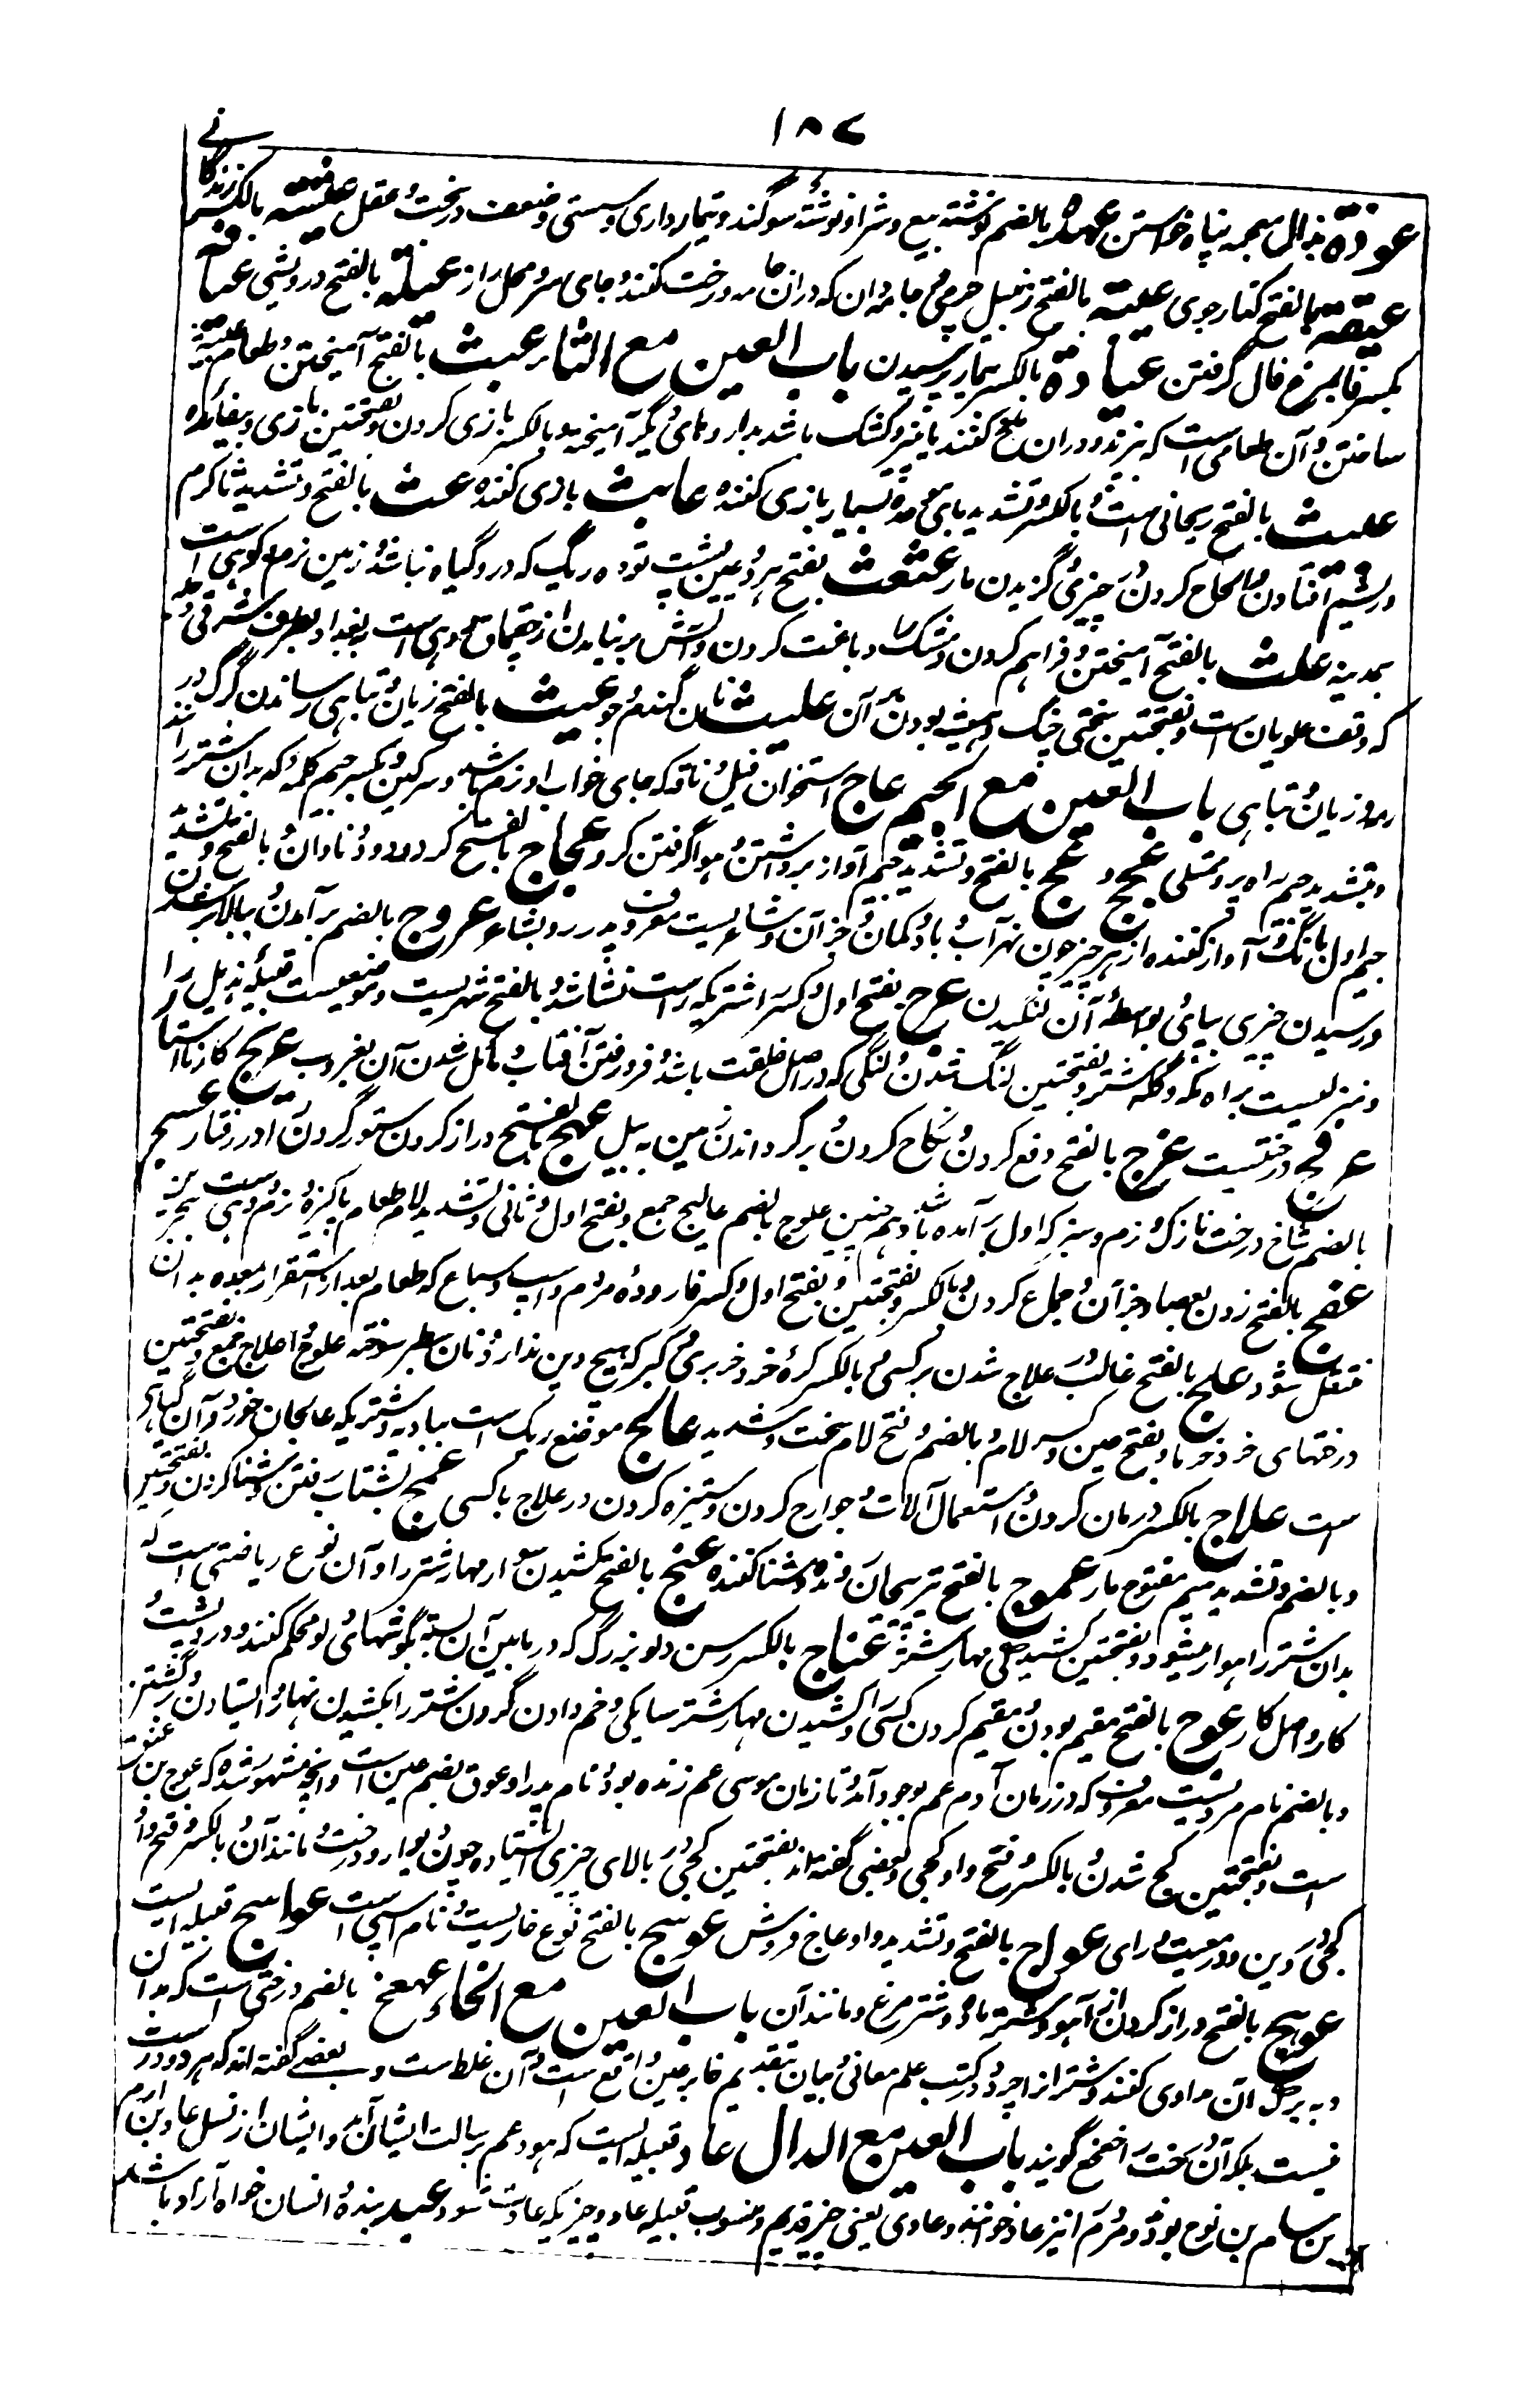 ١٨٧
عوذة بذال معجمه پناه خواستن عهده بالضم نوشته بیع و شرا و نوشته سوگند و تیمارداری و سستی و ضعف در خط و عقل عیشة بالکسر زندگانی
عیقة بالفتح کنار جوی عیبة بالفتح زنبیل چرمی و جامه دان که دران جامه و رخت کنند و جای سر و محل راز عیلة بالفتح درویشی عیافة
بکسر فا بمرغ فال گرفتن عیادة بالکسر بیمار پرسیدن باب العین مع الثاء عبث بالفتح آمیختن و طعام عبیثه
ساختن و آن طعامی است که بپزند و دران ملخ کنند یا پنیر و کشک باشد بداروهای دیگر آمیخته و بالکسر بازی کردن و بفتحتین بازی و بیفائده
عبیث بالفتح ریحانی است و بالکسر و تشدید بای موحده بسیار بازی کننده عابث بازی کننده عث بالفتح و تشدید ثا کرم
در پشیم افتادن و الحاح کردن و در چیزی گزیدن مار عثعث بفتح هر دو عین پشت توده ریگ که درو گیاه نباشد و زمین نرم و کوهی است
بمدینه علث بالفتح آمیختن و فراهم کردن و مشک را دباغت کردن و آتش بر نیامدن از چقماق و دهی است ببغداد بطرف شرقی دجله
که وقف علویان است و بفتحتین سختی جنگ و همیشه بودن بر آن علیث نان گندم و جو عیث بالفتح زیان و تباهی رساندن گرگ در
رمه و زیان و تباهی باب العین مع الجیم عاج استخوان فیل و ناقه که جای خواب او نرم باشد و سرگین و بکسر جیم کلمه که بدان شتر را رانند
و بتشدید جیم راه پر و ممتلی عجیج و عج بالفتح و تشدید جیم آواز برداشتن و هوا گرفتن گرد عجاج بالفتح گرد و دود و نادان و بالفتح و تشدید
جیم اول بانگ و آواز کننده از هر چیز چون نهر آب و باد و کمان و جز آن و شاعریست معروف پدر روبه شاعر عروج بالضم برآمدن و ببالا بر شدن
و رسیدن چیزی بپائی بواسطه آن لنگیدن عرج بفتح اول و کسر را شتریکه راست نشاشد و بالفتح شهریست و موضعیست قبیله هذیل را
و منزلیست براه مکه و گله شتر و بفتحتین لنگ شدن و لنگی که در اصل خلقت باشد و فرو رفتن آفتاب و مائل شدن آن بغروب عریج کار نااستا
عرفج درختیست عزج بالفتح دفع کردن و نکاح کردن و برگرداندن زمین به بیل عسج بالفتح دراز کردن ستور گردن را در رفتار عسلج
بالضم شاخ درخت نازک و نرم و سبز که اول برآمده باشد و همچنین علوج بالضم عالیج جمع و بفتح اول و ثانی و تشدید لام طعام پاکیزه و نرم و دهی است بحرین
عفج بالفتح زدن بعصا و جز آن و جماع کردن و بالکسر و بفتحتین و بفتح اول و کسر فا روده مردم و اسپ و سباع که طعام بعد از استقرار معده بدان
منتقل شود علج بالفتح غالب در علاج شدن بر کسی و بالکسر کره خر و خر بری و گبر که هیچ دین ندارد و نان سطبر سوخته علوج و اعلاج جمع و بفتحتین
درختهای خرد خرما و بفتح عین و کسر لام و بالضم و فتح لام سخت و شدید عالج موضع ریگ است ببادیه و شتریکه عالجان خورد و آن گیاهی
است علاج بالکسر درمان کردن و استعمال آلات و جوارح کردن و ستیزه کردن در علاج با کسی عمج بشتاب رفتن و شنا کردن و بفتحتین
و بالضم و تشدید میم مفتوح مار عموج بالفتح تیر پیچان رونده و شنا کننده عنج بالفتح کشیدن سوار مهار شتر را و آن نوع ریاضتی است که
بدان شتر راهوار میشود و بفتحتین کشیدگی مهار شتر عناج بالکسر رسن دلو بزرگ که در مابین آن بسته بگوشهای دلو محکم کنند و درد پشت و
کار و اصل کار عوج بالفتح مقیم بودن و مقیم کردن کسی را و کشیدن مهار شتر سایکی و خم دادن گردن شتر را بکشیدن مهار و ایستادن و برگشتن
و بالضم نام مردیست معروف که در زمان آدم عم بوجود آمد و تا زمان موسی عم زنده بود و نام پدر او عوق بضم عین است و آنچه مشهور شده که عوج بن عنق
است و بفتحتین کج شدن و بالکسر و فتح واو کجی و بعضی گفته اند بفتحتین کجی در بالای چیزی ایستاده چون دیوار و درخت و مانند آن و بالکسر و فتح واو
کجی در دین و در معیشت و رای عواج بالفتح و تشدید واو عاج فروش عوسج بالفتح نوع خاریست و نام اسپی است عواسج قبیله ایست
عوهج بالفتح دراز گردن از آهو و شتر ماده و شتر مرغ و مانند آن باب العین مع الخاء عهعخ بالضم درختی است که بدان
و به برگ آن مداوی کنند و شتر از چرد و در کتب علم معانی و بیان بتقدیم خا بر عین واقع است و آن غلط است و بعضی گفته اند که هر دو درست
نیست بلکه آن درخت را خعخع گویند باب العین مع الدال عاد قبیله ایست که هود عم برسالت ایشان آمد و ایشان از نسل عاد بن ارم
بن سام بن نوح بودند و مردم را نیز عاد خوانند و عادی یعنی چیز قدیم و منسوب بقبیله عاد و چیزیکه عادت شود عبد بنده و انسان خواه آزاد باشد